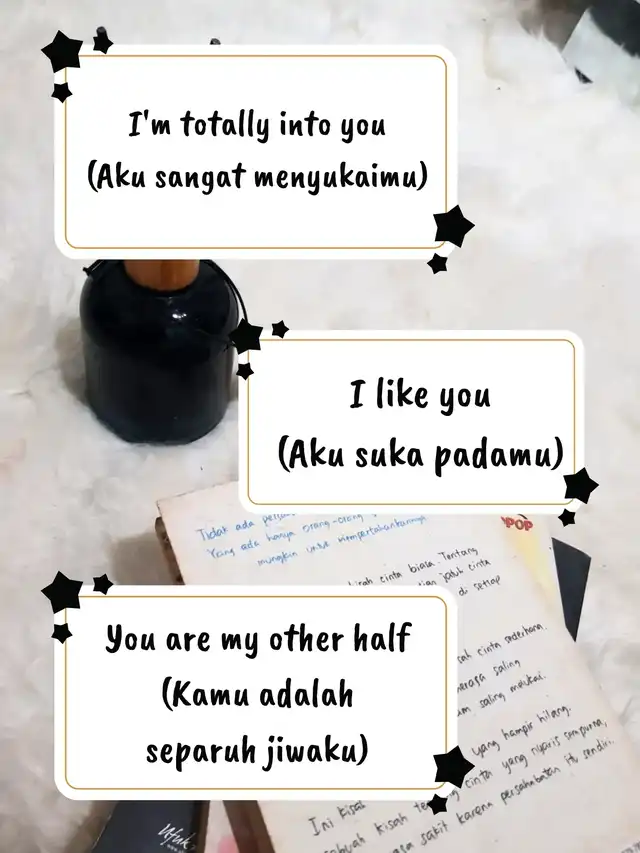 I'm totally into you
(Aku sangat menyukaimu)
I like you
(Aku suka padamu)
Tidak ada
Yang ada hanya orang-orang
mungkin untuk mempertahankannya
POP
kisah cinta biasa. Tentang
jatuh cinta
di setiap
cinta sederhana.
merasa saling
saling melukai.
You are my other half
(Kamu adalah
separuh jiwaku)
yang hampir hilang.
Ini kisah
sebuah kisah cinta yang nyaris sempurna,
rasa sakit karena persahabatan itu sendiri.